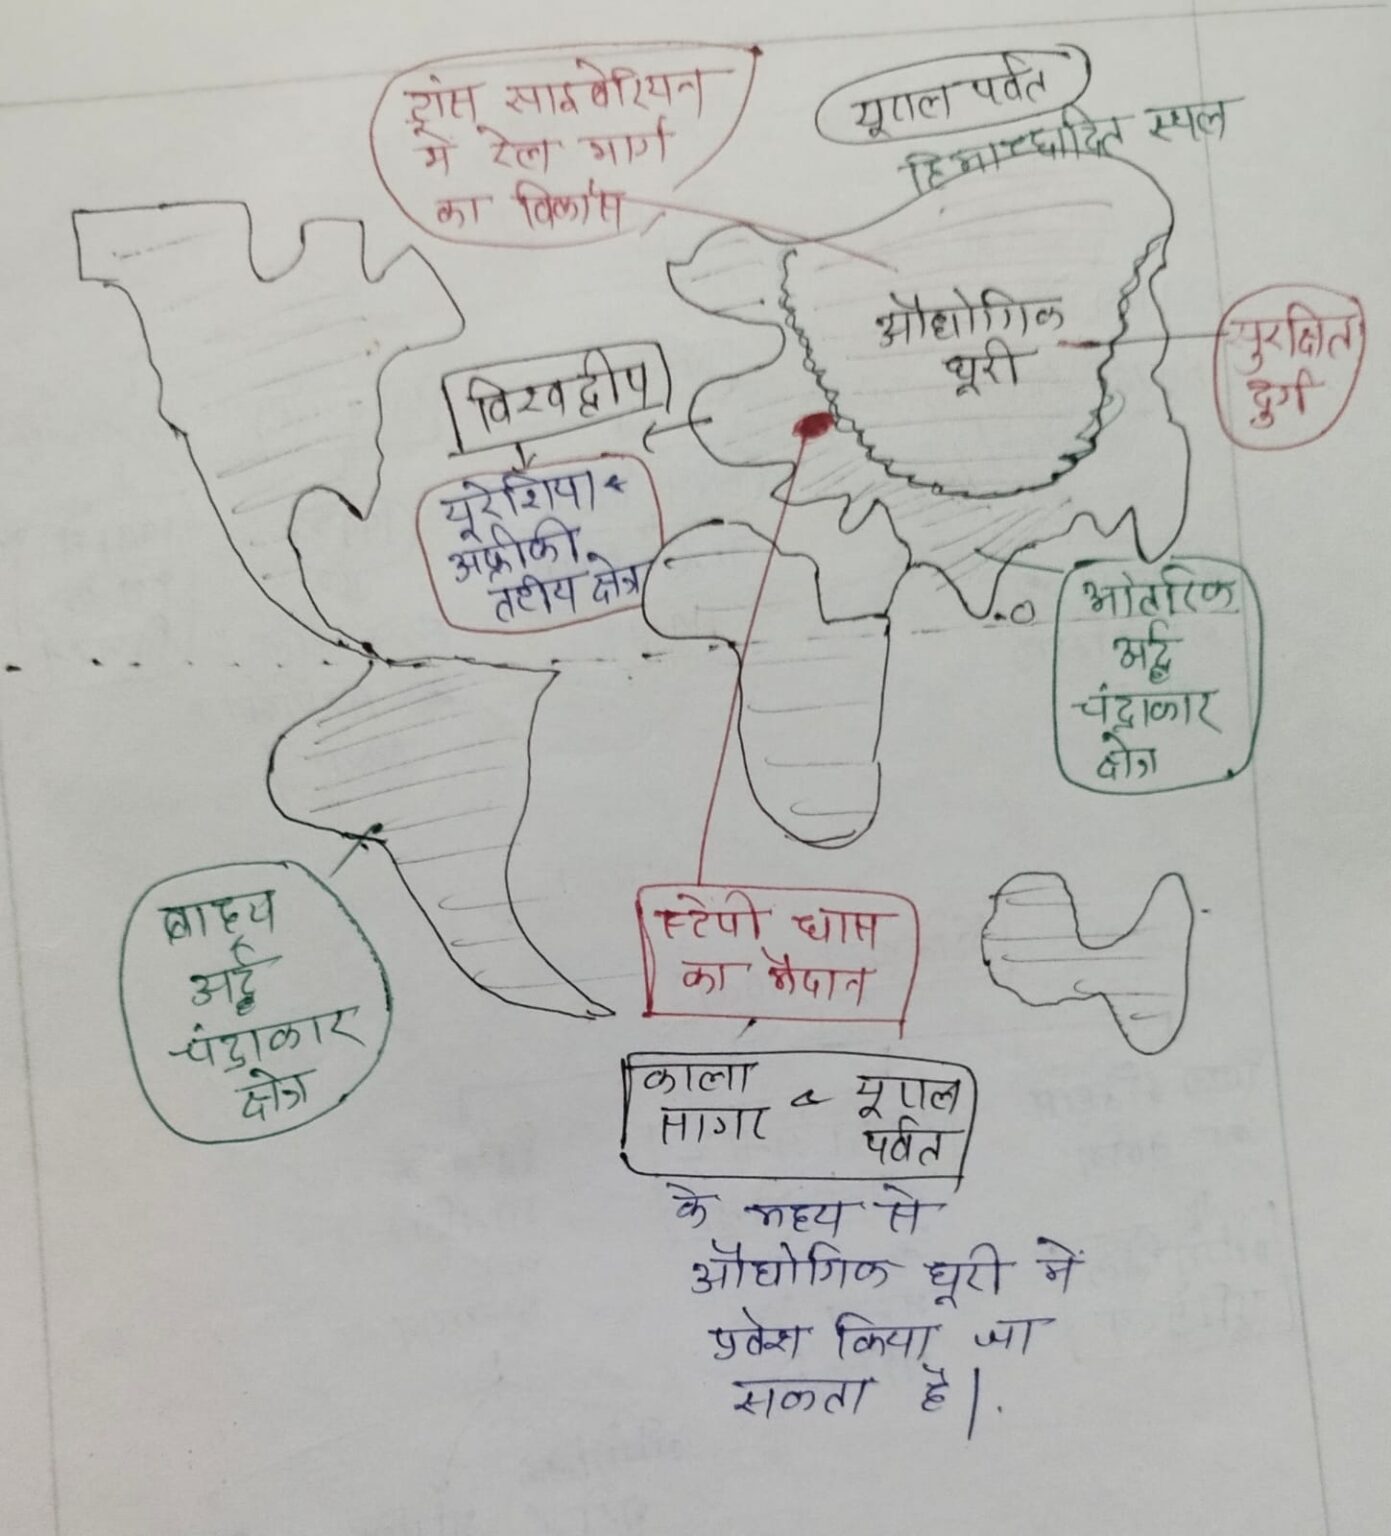 ट्रांस साइबेरियन
में रेल मार्ग
का विकास
यूराल पर्वत
हिमाच्छादित स्थल
औद्योगिक
धूरी
सुरक्षित
दुर्ग
विश्वद्वीप
यूरेशिया &
अफ्रीकी
तटीय क्षेत्र
आंतरिक
अर्द्ध
चंद्राकार
क्षेत्र
बाह्य
अर्द्ध
चंद्राकार
क्षेत्र
स्टेपी घास
का मैदान
काला सागर & यूराल पर्वत
के मध्य से
औद्योगिक धूरी में
प्रवेश किया जा
सकता है|.